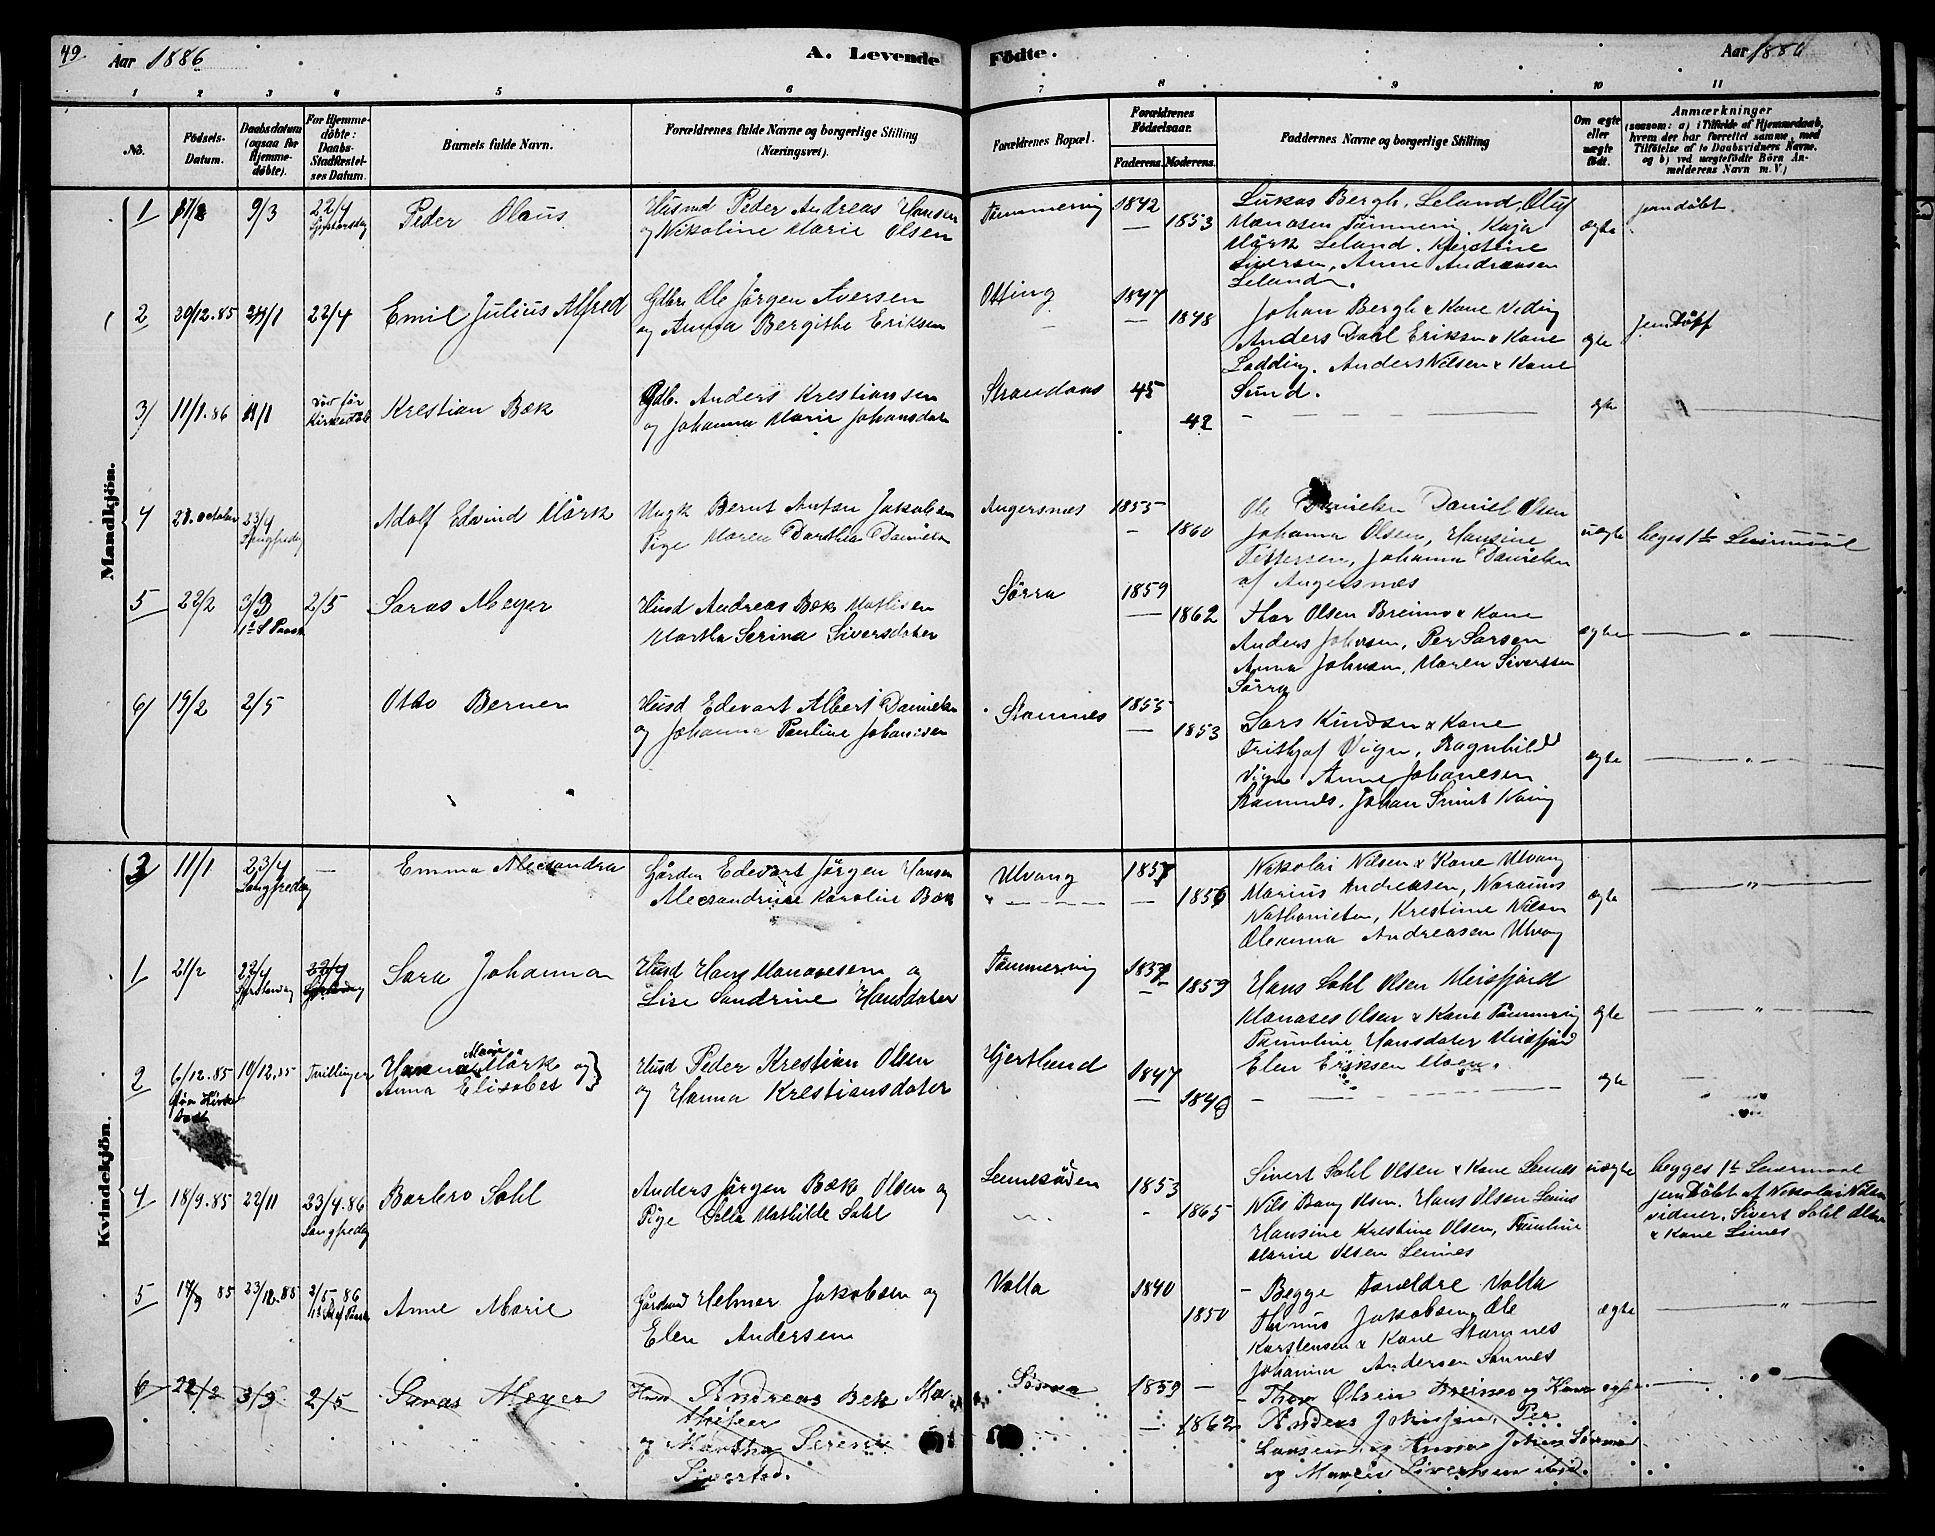 49
Aar 1886
A. Levende
Födte.
Aar 1886
1 2 3 4 5 6 7 8 9 10 11
No.
Födsels-
Datum.
Daabsdatum
(ogsaa for
Hjemme-
döbte).
For Hjemme-
döbte:
Daabs-
Stadfæstel-
ses Datum.
Barnets fulde Navn.
Forældrenes fulde Navne og borgerlige Stilling
(Næringsvei).
Forældrenes Bopæl.
Forældrenes
Födselsaar.
Faderens. Moderens.
Faddernes Navne og borgerlige Stilling
Om ægte
eller
uægte
födt.
Anmærkninger
(saasom: a) i Tilfælde af Hjemmedaab,
hvem der har forrettet samme, med
Tilföielse af to Daabsvidners Navne.
og b) ved uægtefödte Börn An-
melderens Navn m. V.)
Mandkjön.
1 9/3 22/4 Peder Olaus
Husmd Peder Andreas Hansen
og Nikoline Marie Olsen
Tømmervig 1842
1853
Lukas Bergh, Leland, Oluf
Manasen Tømmervig. Kaja
Mörk Leland. Kjerstine
Siversen, Anne Andreasen
Leland.
ægte
jemdöbt.
2 20/12.85 22/4 Emil Julius Alfred
Gdbr Ole Jörgen Aversen
og Anna Bergithe Eriksen
Otting 1847
1848
Johan Bergh & Kone Veding
Anders Dahl Eriksen & Kone
Lodding. Anders Nilsen & Kone
Sund.
ægte
jemdöbt
3) 11/1.86 11/1
död för
Kirkedåb
Krestian Bæk
Gdb. Anders Krestiansen
og Johanna Marie Johansdatr
Strandaas 45
42
ægte
4 21. october 23/4
Langfredag
Adolf Edvind Mörk
Ungk Bernt Anton Jakobsen
Pige Maren Dorthea Danielsen
Angersnes 1855
1860
Ole Danielsen Daniel Olsen
Johanna Olsen, Hansine
Pettersen, Johanna Danielsen
af Angersnæs
uægte
beges 1te Leiermaal
5 22/2 3/3 2/5 Saras Meyer
Husd Andreas Bæk Mathisen
Martha Serina Siversdater
Sörra 1859
1862
Thor Olsen Breimo & Kone
Anders Johnsen, Per Larsen
Anna Johnsen, Maren Siversen
Sörra
ægte
6 19/2 2/5 Otto Berner
Husd Edevart Albert Danielsen
og Johanna Pauline Johansen
Stamnes 1855
1853
Lars Knudsen & Kone
Frithjof Vign, Ragnhild
Vign Anne Johanesen
Stamnes, Johan Smidt Naving
ægte
Kvindekjön.
3 11/1 23/4
Langfredag
Emma Alecsandra
Gårdm Edevart Jörgen Hansen
Alecsandrine Karoline Bæk
Ulvang 1857
1856
Nikolai Nilsen & Kone Ulvang
Marius Andreasen,
Nathanielsen, Krestine Nilsen
Oleanna Andreasen Ulvang
ægte
1 21/2 22/4 Sara Johanna
Husd Hans Manasesen og
Lise Sandrine Hansdater
Tømmervig
1859
Hans Dahl Olsen Meisfjord
Manases Olsen & Kone Tømmervig
Pauline Hansdater Meisfjord
Elen Eriksen Moen.
ægte
2 6/12.85 10/12.85 Tvillinger
Hanna Marie Mörk og
Anna Elisabet
Husd Peder Krestian Olsen
og Hanna Krestiansdater
Hjertland 1847
ægte
4 18/9.85 22/11 23/4.86
Langfredag
Barbro Dahl
Anders Jörgen Bæk Olsen og
Pige Della Mathilde Dahl
1853
1865
Sivert Dahl Olsen & Kone Leines
Nils Bang Olsen. Hans Olsen Leines
Hansine Krestine Olsen, Pauline
Marie Olsen Leines
uægte
begges 1te Leiermaal
jemdöbt af Nikolai Nilsen
vidner, Sivert Dahl Olsen
& Kone Leines
5 17/9 85 23/12.85 2/5-86
Anne Marie
Gårdmd Helmer Jakobsen og
Elen Andersen
Valla 1840
1850
Begge Forældre Valla
Jakobsen, Ole
Karstensen & Kone Stamnes
Johanna Andersen Sannes
ægte
6 22/2 3/3 2/5 Saras Meyer
Husd Andreas Bek Ma-
thisen
og Martha Serena
Siversd.
Sörra 1859
1862
Thor Olsen Breimo og Kone
Anders Johnsen, Per
Larsen og Anna Johns. Sörra
og Maren Siversen ibid.
ægte